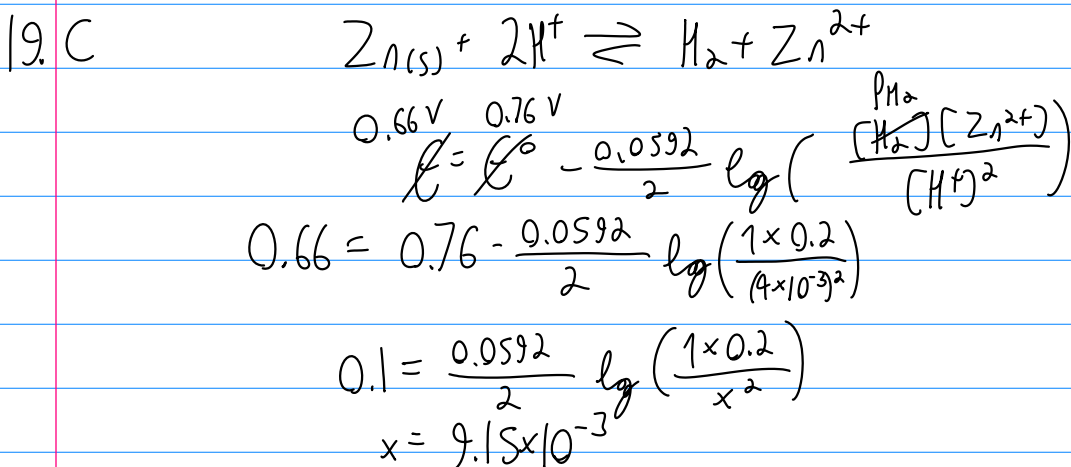 19. C Zn(s) + 2H⁺ ⇌ H₂ + Zn²⁺
0.66 V 0.76 V PH₂
E = E° - 0.0592/2 log( [H₂][Zn²⁺] / [H⁺]² )
0.66 = 0.76 - 0.0592/2 log( 1×0.2 / (4×10⁻³)² )
0.1 = 0.0592/2 log( 1×0.2 / x² )
x = 9.15×10⁻³